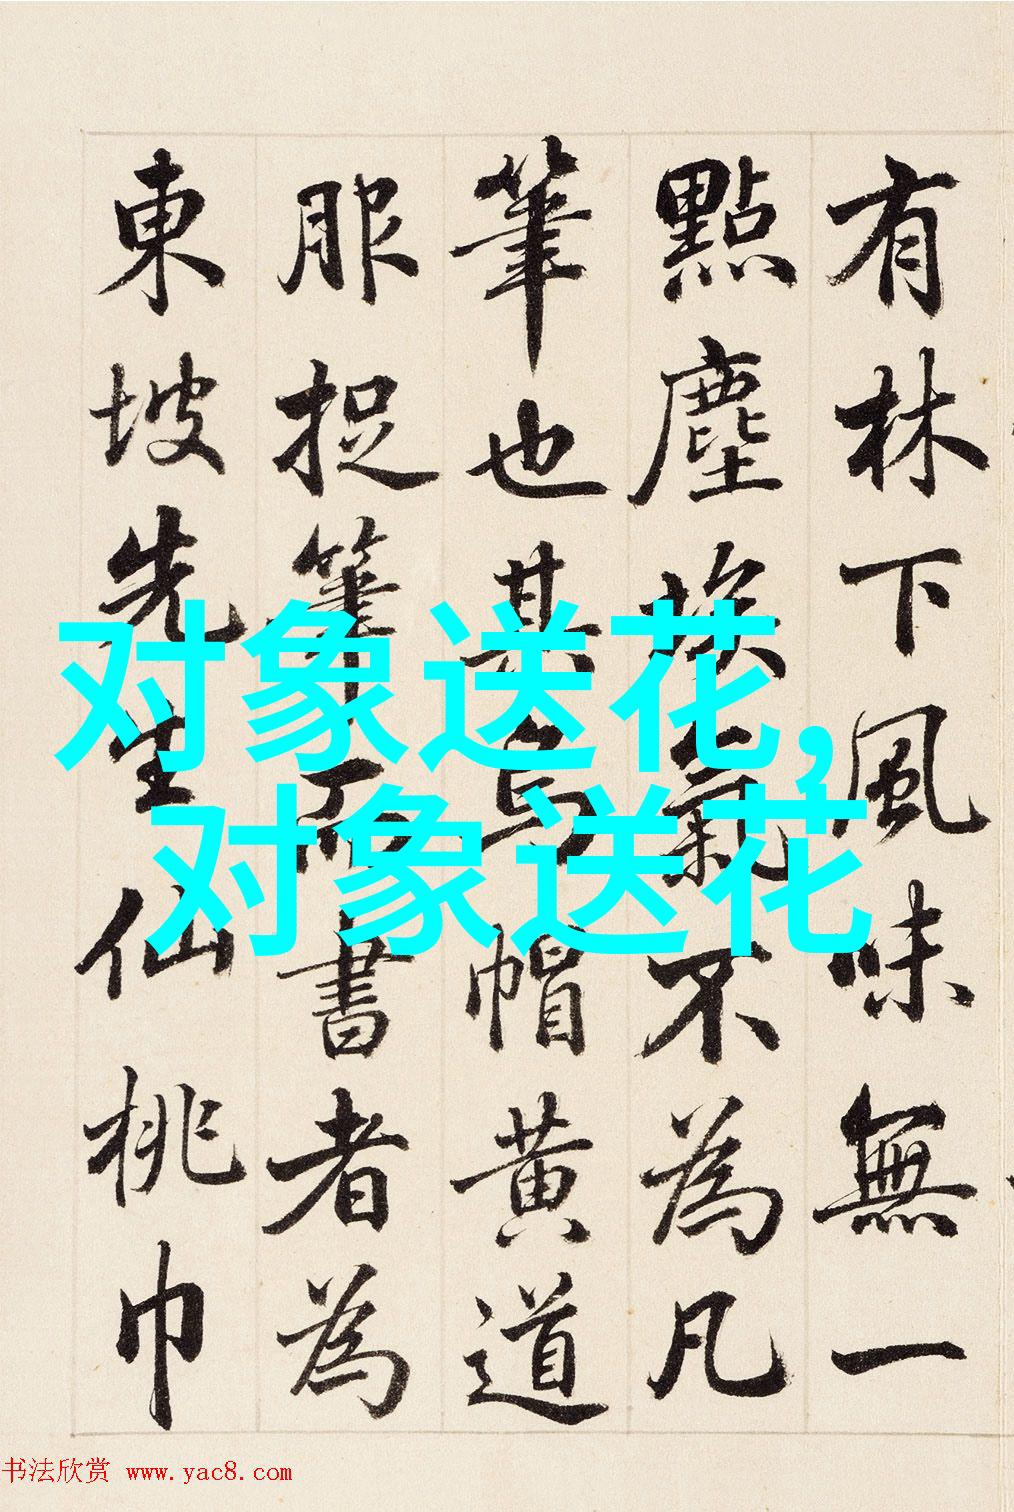 有林下風味無一
點塵埃氣不為凡
筆也其烏帽黃道
服捉筆而書者為
東坡先生仙桃巾
对象送花，
对象送花
书法欣赏 www.yac8.com